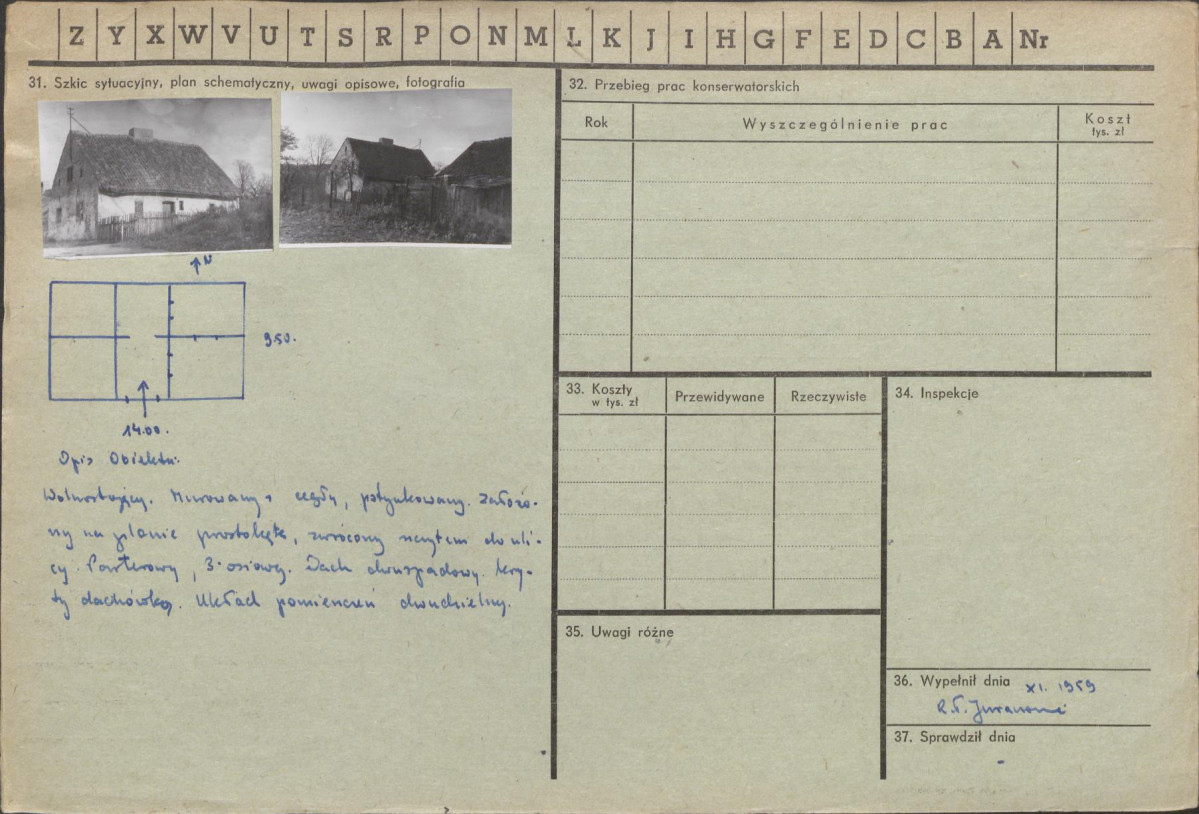 Z Y X W V U T S R P O N M Ł K J I H G F E D C B A Nr
31. Szkic sytuacyjny, plan schematyczny, uwagi opisowe, fotografia
N
9.50.
14.00.
Opis Obiektu:
Wolnostojący. Murowany z cegły, potynkowany. Założo-
ny na planie prostokąta, zwrócony szczytem do uli-
cy. Parterowy, 3-osiowy. Dach dwuspadowy kry-
ty dachówką. Układ pomieszczeń dwudzielny.
32. Przebieg prac konserwatorskich
Rok
Wyszczególnienie prac
Koszt
tys. zł
33. Koszty
w tys. zł
Przewidywane
Rzeczywiste
34. Inspekcje
35. Uwagi różne
36. Wypełnił dnia XI. 1959
37. Sprawdził dnia
-